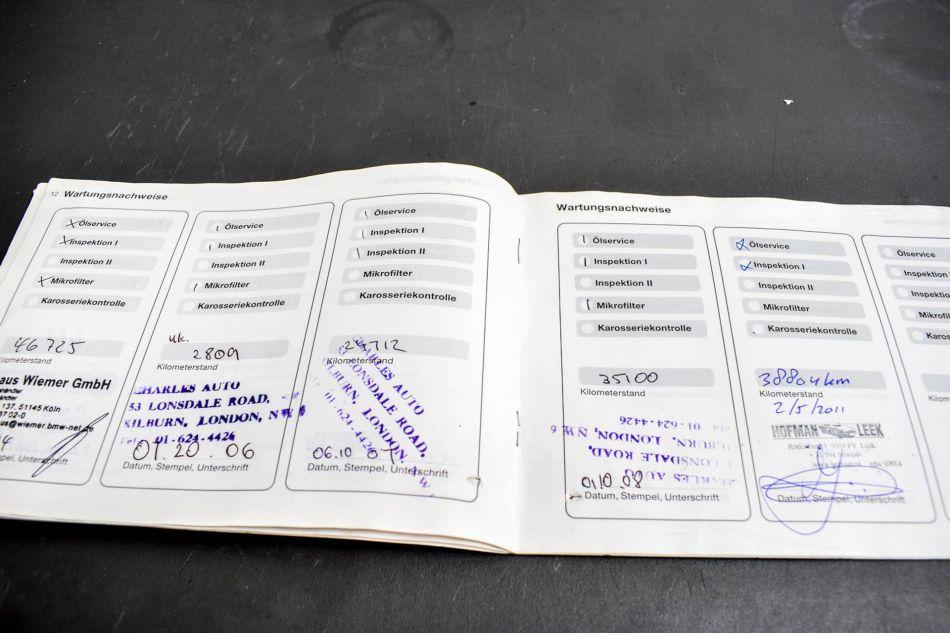 12 Wartungsnachweise
Ölservice
Inspektion I
Inspektion II
Mikrofilter
Karosseriekontrolle
46725
Kilometerstand
aus Wiemer GmbH
137, 51145 Köln
us@wiemer.bmw-net.de
Unterschrift
Ölservice
Inspektion I
Inspektion II
Mikrofilter
Karosseriekontrolle
uk.
2809
Kilometerstand
CHARLES AUTO
33 LONSDALE ROAD,
KILBURN, LONDON, N.W 6
Tel. 01-624-4426
01.20.06
Datum, Stempel, Unterschrift
Ölservice
Inspektion I
Inspektion II
Mikrofilter
Karosseriekontrolle
Kilometerstand
CHARLES AUTO
33 LONSDALE ROAD,
KILBURN, LONDON, N.W.
01-624-4426
06.10 07
Datum, Stempel, Unterschrift
Wartungsnachweise
Ölservice
Inspektion I
Inspektion II
Mikrofilter
Karosseriekontrolle
35100
Kilometerstand
CHARLES AUTO
33 LONSDALE ROAD,
KILBURN, LONDON, N.W 6
01-624-4426
01.10.08
Datum, Stempel, Unterschrift
Ölservice
Inspektion I
Inspektion II
Mikrofilter
Karosseriekontrolle
38804km
Kilometerstand
2/5/2011
HOFMAN LEEK
Datum, Stempel, Unterschrift
Ölservice
Inspektion
Inspektion
Mikrofilter
Kilometerstand